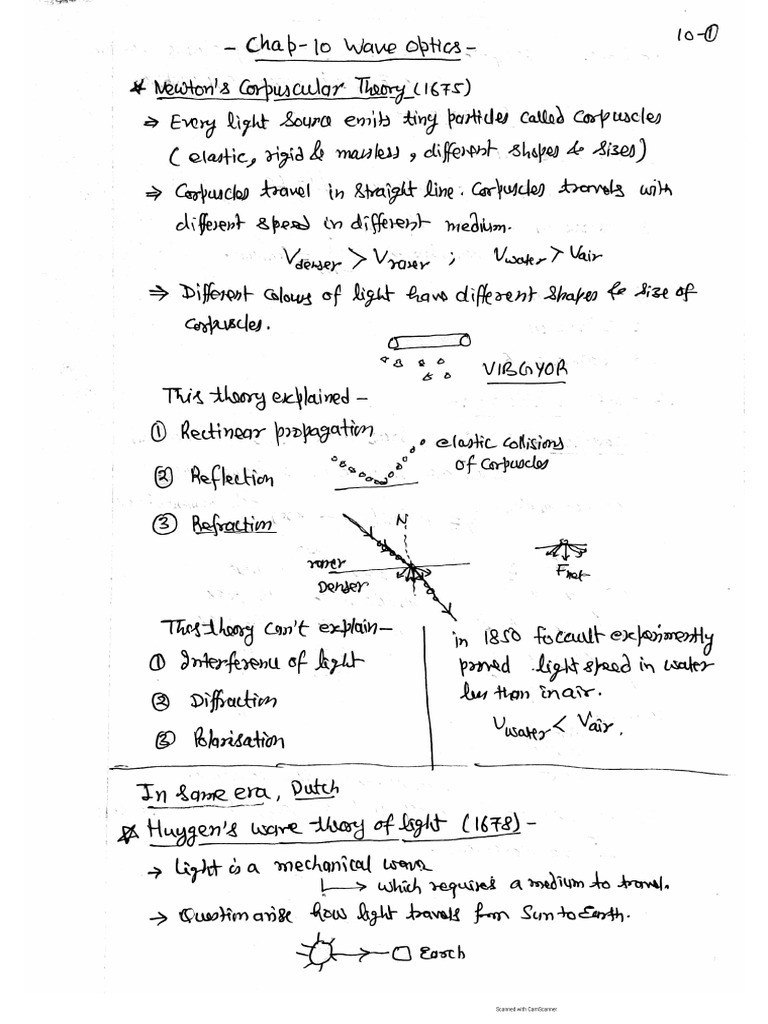 10-①
- Chap-10 Wave Optics -
* Newton's Corpuscular Theory (1675)
⇒ Every light source emits tiny particles called corpuscles
(elastic, rigid & massless, different shapes & sizes)
⇒ Corpuscles travel in straight line. Corpuscles travels with
different speed in different medium.
Vdenser > Vrarer ; Vwater > Vair
⇒ Different colours of light have different shapes & size of
corpuscles.
VIBGYOR
This theory explained -
① Rectinear propagation
elastic collisions
② Reflection
of corpuscles
③ Refraction
N
rarer
Denser
Fnet
This theory can't explain -
① Interference of light
② Diffraction
③ Polarisation
in 1850 focault experimently
proved light speed in water
less than in air.
Vwater < Vair.
In same era, Dutch
* Huygen's wave theory of light (1678) -
→ Light is a mechanical wave
↳ which requires a medium to travel.
→ Question arise how light travels from Sun to Earth.
Earth
Scanned with CamScanner